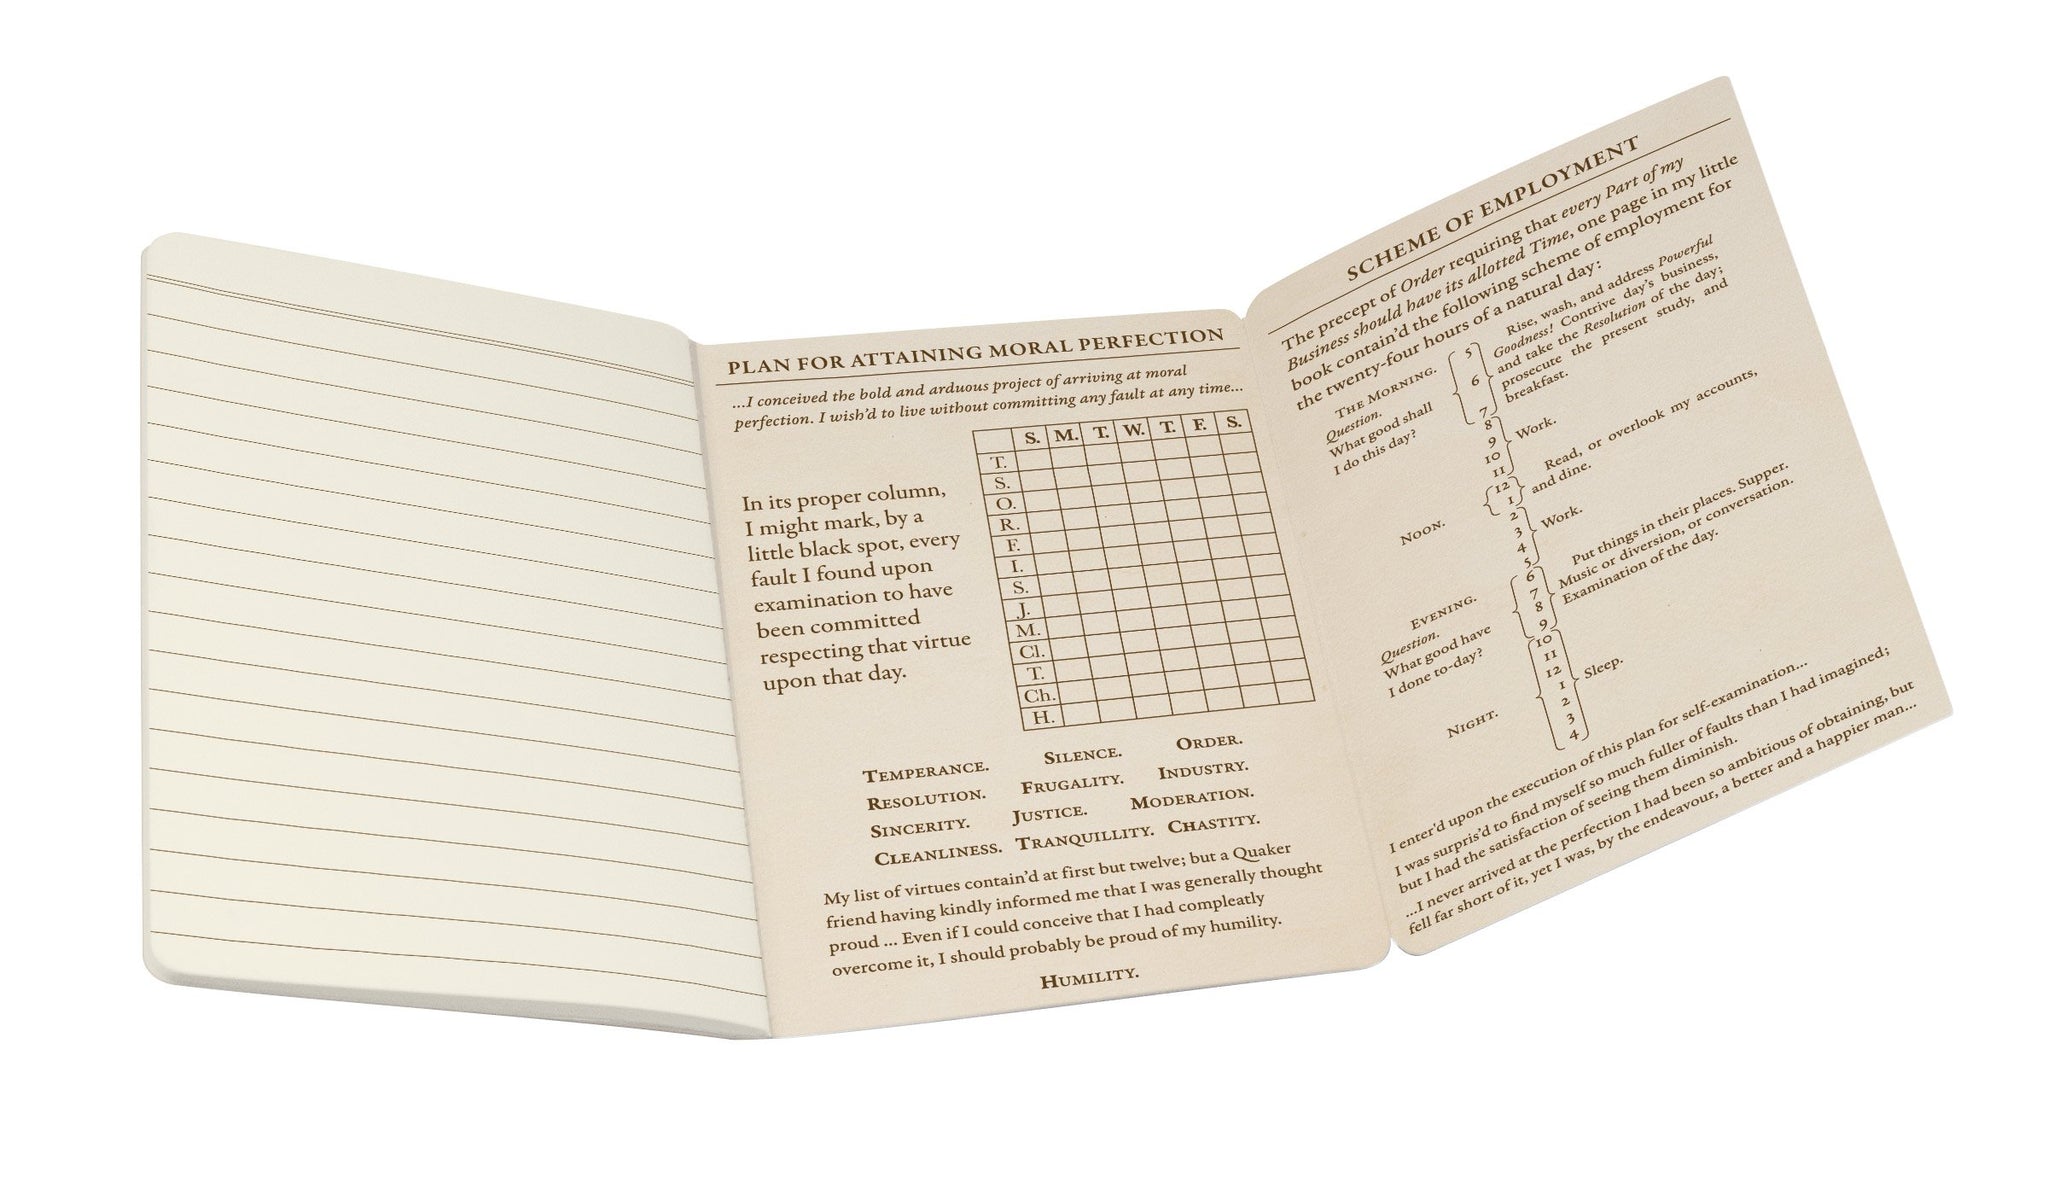 PLAN FOR ATTAINING MORAL PERFECTION
...I conceived the bold and arduous project of arriving at moral
perfection. I wish'd to live without committing any fault at any time...
S. M. T. W. T. F. S.
T.
S.
O.
R.
F.
I.
S.
J.
M.
Cl.
T.
Ch.
H.
In its proper column,
I might mark, by a
little black spot, every
fault I found upon
examination to have
been committed
respecting that virtue
upon that day.
TEMPERANCE. SILENCE. ORDER.
RESOLUTION. FRUGALITY. INDUSTRY.
SINCERITY. JUSTICE. MODERATION.
CLEANLINESS. TRANQUILLITY. CHASTITY.
My list of virtues contain'd at first but twelve; but a Quaker
friend having kindly informed me that I was generally thought
proud ... Even if I could conceive that I had compleatly
overcome it, I should probably be proud of my humility.
HUMILITY.
SCHEME OF EMPLOYMENT
The precept of Order requiring that every Part of my
Business should have its allotted Time, one page in my little
book contain'd the following scheme of employment for
the twenty-four hours of a natural day:
THE MORNING.
Question.
What good shall
I do this day?
5
6
7
Rise, wash, and address Powerful
Goodness! Contrive day's business,
and take the Resolution of the day;
prosecute the present study, and
breakfast.
8
9
10
11
Work.
NOON.
12
1
Read, or overlook my accounts,
and dine.
2
3
4
5
Work.
EVENING.
Question.
What good have
I done to-day?
6
7
8
9
Put things in their places. Supper.
Music or diversion, or conversation.
Examination of the day.
NIGHT.
10
11
12
1
2
3
4
Sleep.
I enter'd upon the execution of this plan for self-examination...
I was surpris'd to find myself so much fuller of faults than I had imagined;
but I had the satisfaction of seeing them diminish.
...I never arrived at the perfection I had been so ambitious of obtaining, but
fell far short of it, yet I was, by the endeavour, a better and a happier man...